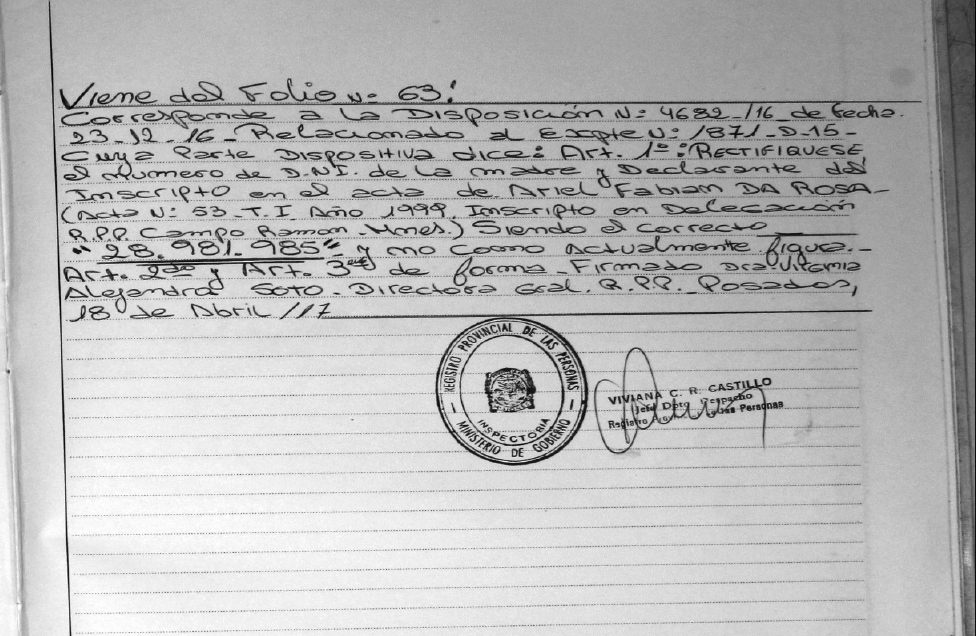 Viene del Folio Nº 63:
Corresponde a la Disposición Nº 4682/16 de fecha.
23-12-16- Relacionado al Expte Nº: 1871-D-15-
Cuya Parte Dispositiva dice: Art. 1º: RECTIFIQUESE
el Numero de D.N.I. de la madre y Declarante del
Inscripto en el acta de Ariel Fabian DA ROSA-
(Acta Nº 53-T.I Año 1999. Inscripto en Delegación
R.P.P. Campo Ramon-Mnes.) Siendo el correcto
"28.981.985" y no como actualmente figura.-
Art. 2do y Art. 3ero de forma-Firmado Dra.
Alejandra SOTO-Directora Gral. R.P.P. Posadas,
18 de Abril/17
REGISTRO PROVINCIAL DE LAS PERSONAS
INSPECTORIA
MINISTERIO DE GOBIERNO
VIVIANA C. R. CASTILLO
Jefe Dpto Despacho
Registro Personas